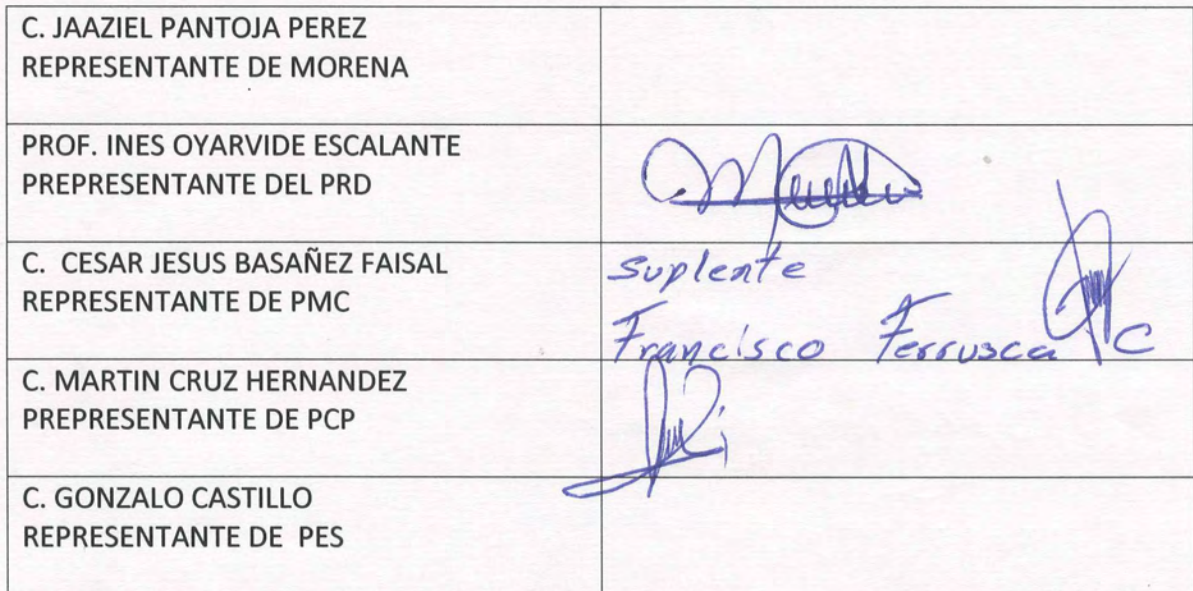 C. JAAZIEL PANTOJA PEREZ
REPRESENTANTE DE MORENA
PROF. INES OYARVIDE ESCALANTE
PREPRESENTANTE DEL PRD
C. CESAR JESUS BASAÑEZ FAISAL
REPRESENTANTE DE PMC
suplente
Francisco Ferrusca C
C. MARTIN CRUZ HERNANDEZ
PREPRESENTANTE DE PCP
C. GONZALO CASTILLO
REPRESENTANTE DE PES